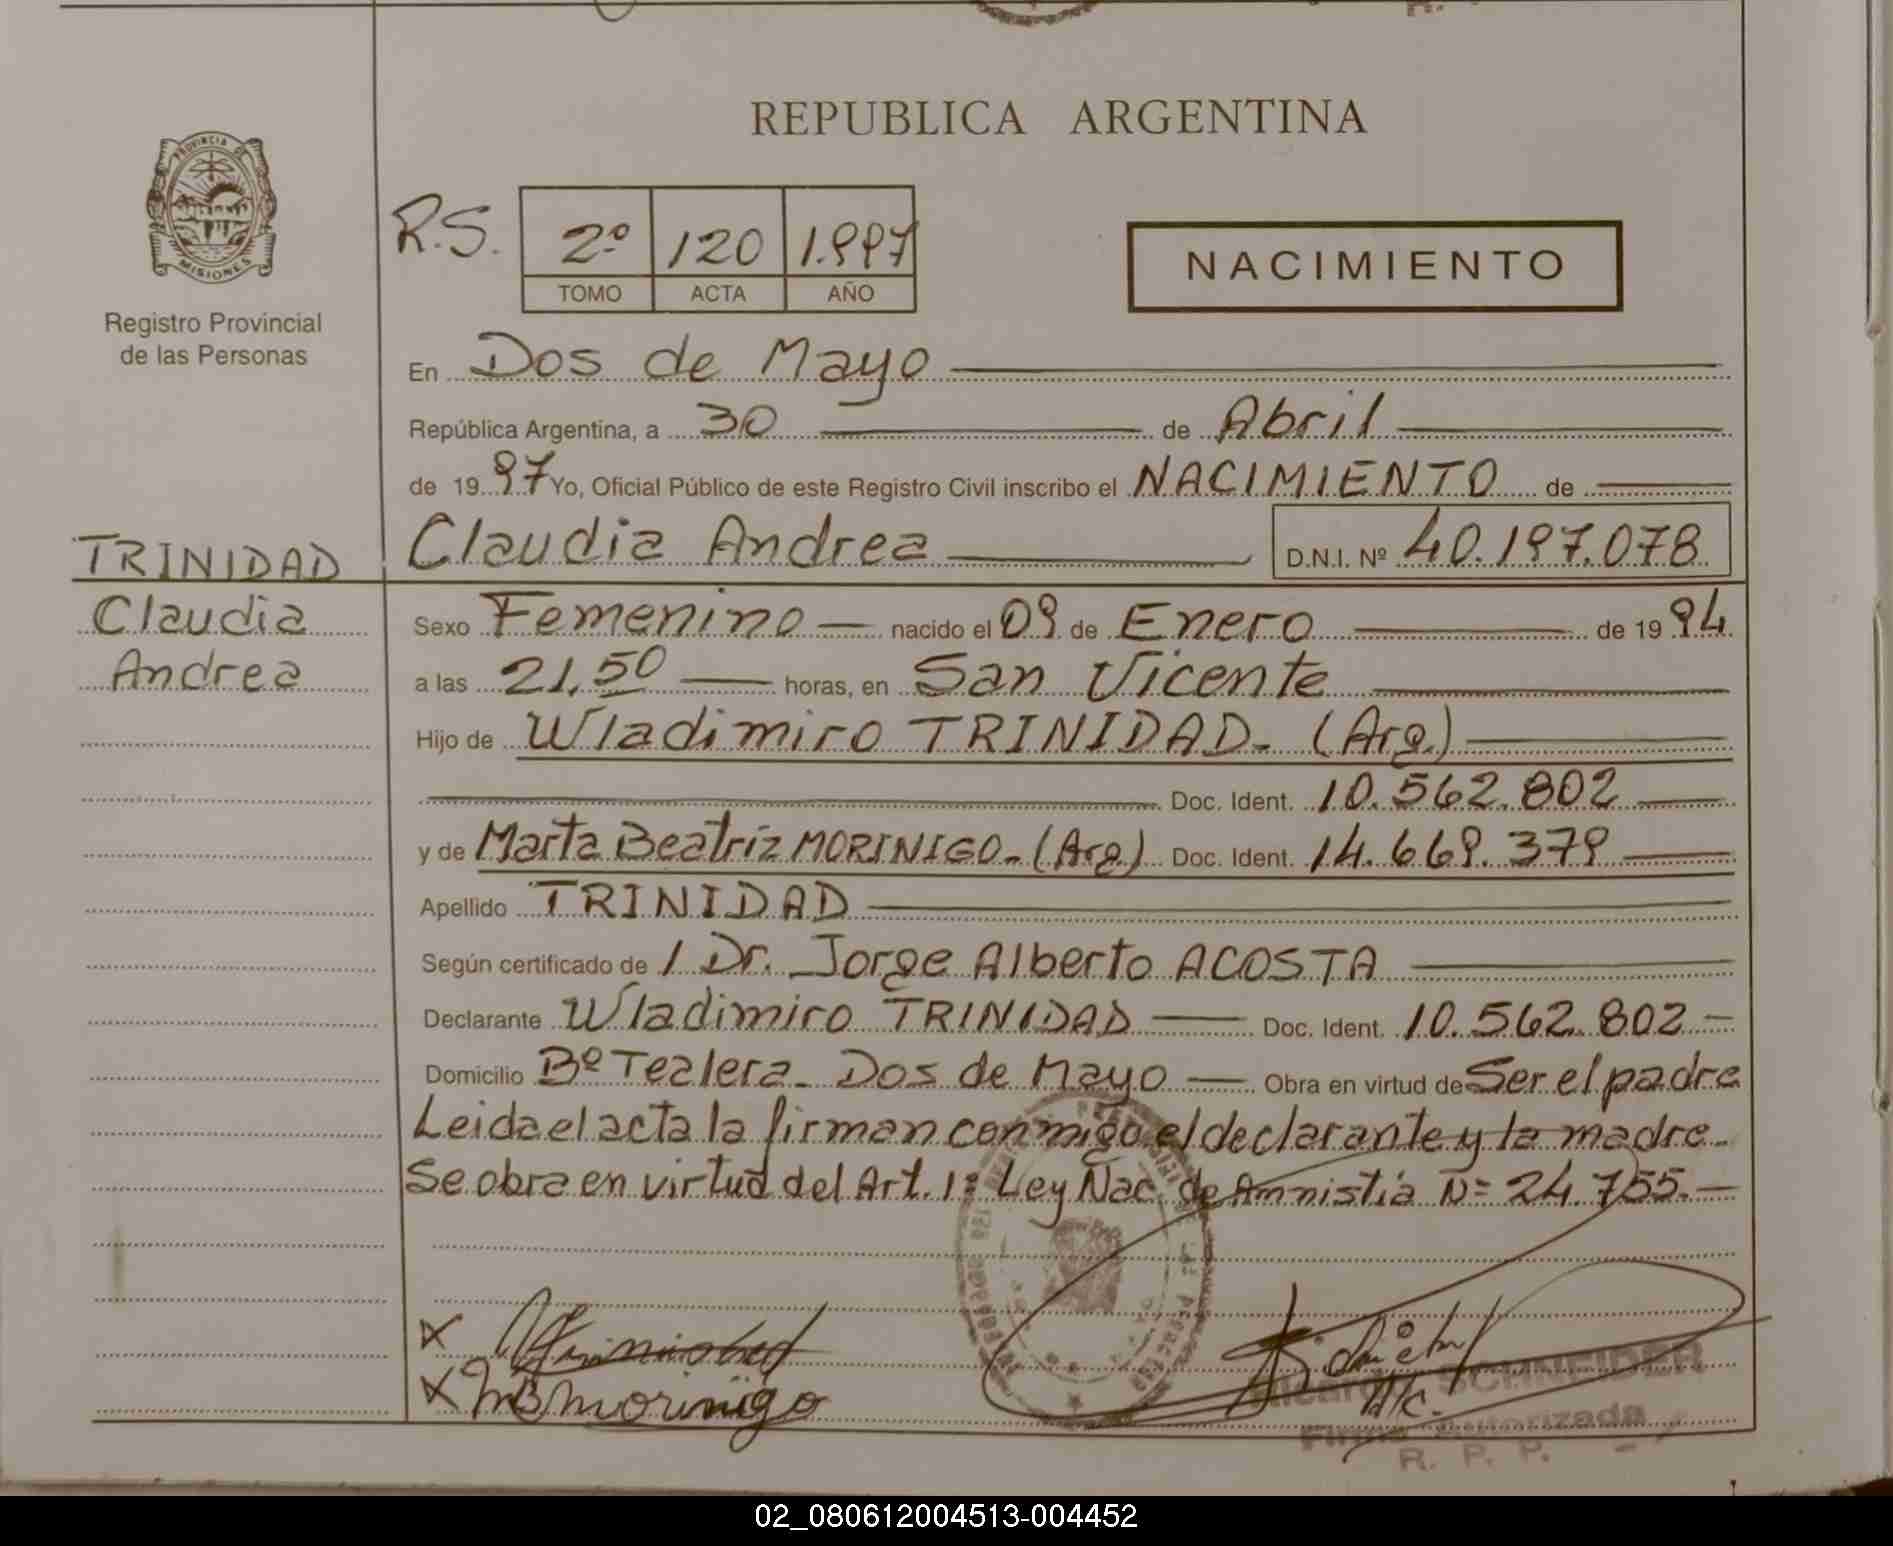 REPUBLICA ARGENTINA
PROVINCIA DE
MISIONES
Registro Provincial
de las Personas
R.S. 2º 120 1.997
TOMO ACTA AÑO
NACIMIENTO
En Dos de Mayo
República Argentina, a 30 de Abril
de 1997 Yo, Oficial Público de este Registro Civil inscribo el NACIMIENTO de
TRINIDAD
Claudia
Andrea
Claudia Andrea D.N.I. Nº 40.197.078
Sexo Femenino nacido el 09 de Enero de 1994
a las 21,50 horas, en San Vicente
Hijo de Wladimiro TRINIDAD- (Arg.)
Doc. Ident. 10.562.802
y de Marta Beatríz MORINIGO-(Arg.) Doc. Ident. 14.669.379
Apellido TRINIDAD
Según certificado de / Dr. Jorge Alberto ACOSTA
Declarante Wladimiro TRINIDAD Doc. Ident. 10.562.802-
Domicilio Bº Tealera- Dos de Mayo Obra en virtud de Ser el padre
Leida el acta la firman conmigo el declarante y la madre-
Se obra en virtud del Art. 1º Ley Nac. de Amnistia Nº 24.755.-
X
X MB Morinigo
SCHNEIDER
Firma Autorizada
R. P. P.
02_080612004513-004452